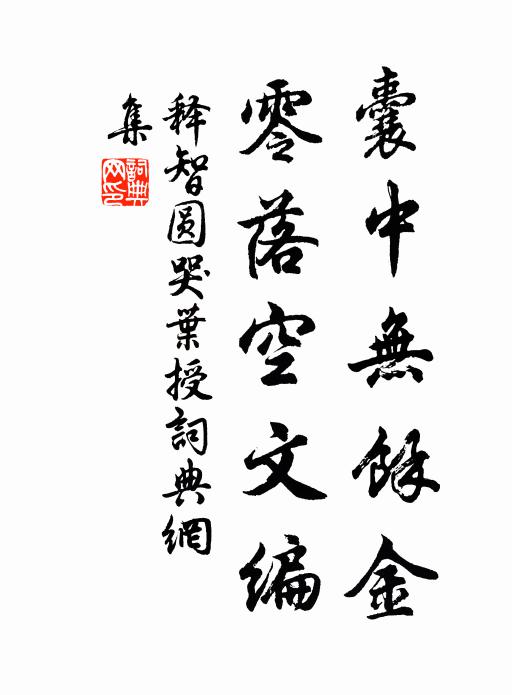 囊中無餘金
零落空文编
释智圆哭葉授詞典網
集
詞典網印